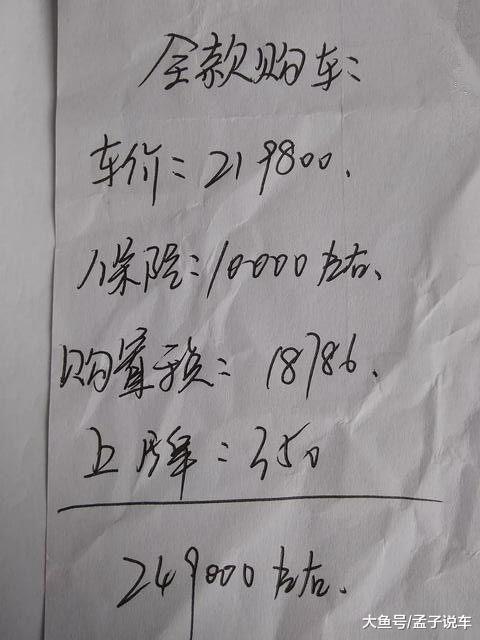 全款购车:
车价=219800.
保险:10000左右、
购置税=18786.
上牌:350
249000左右.
大鱼号/孟子说车